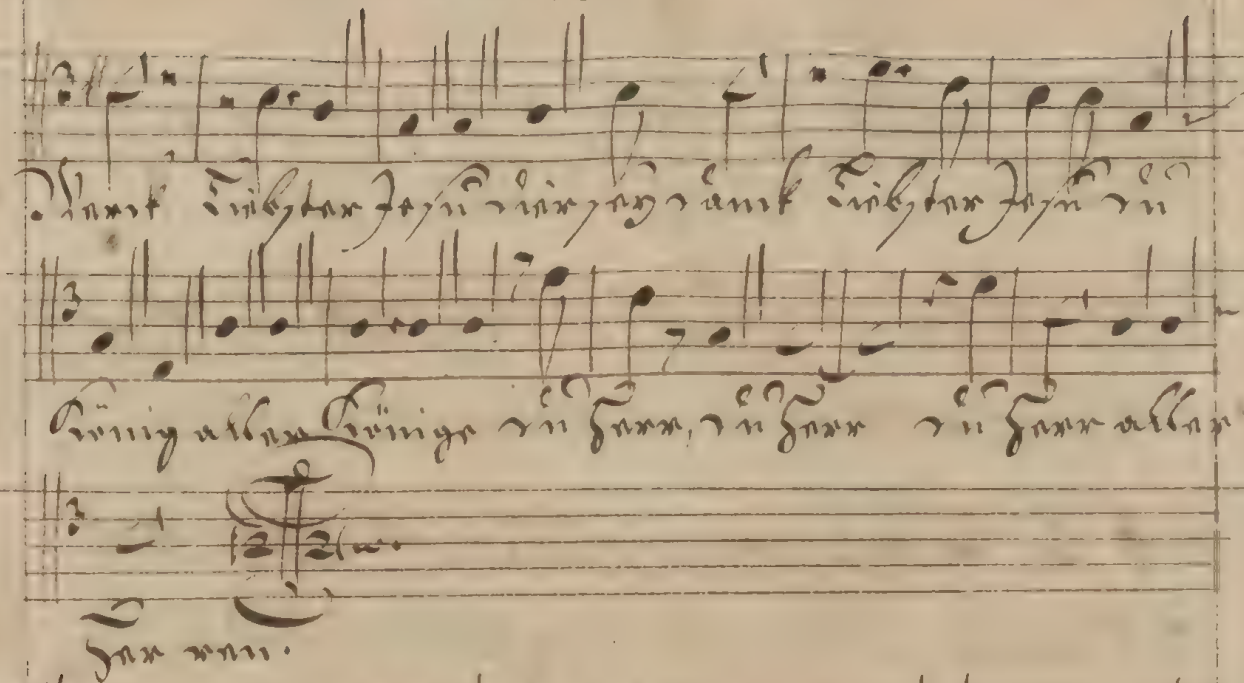 Danck Liebster Jesu dir sey danck Liebster Jesu du
König aller Könige du Herr, du Herr du Herr aller
Her ren.